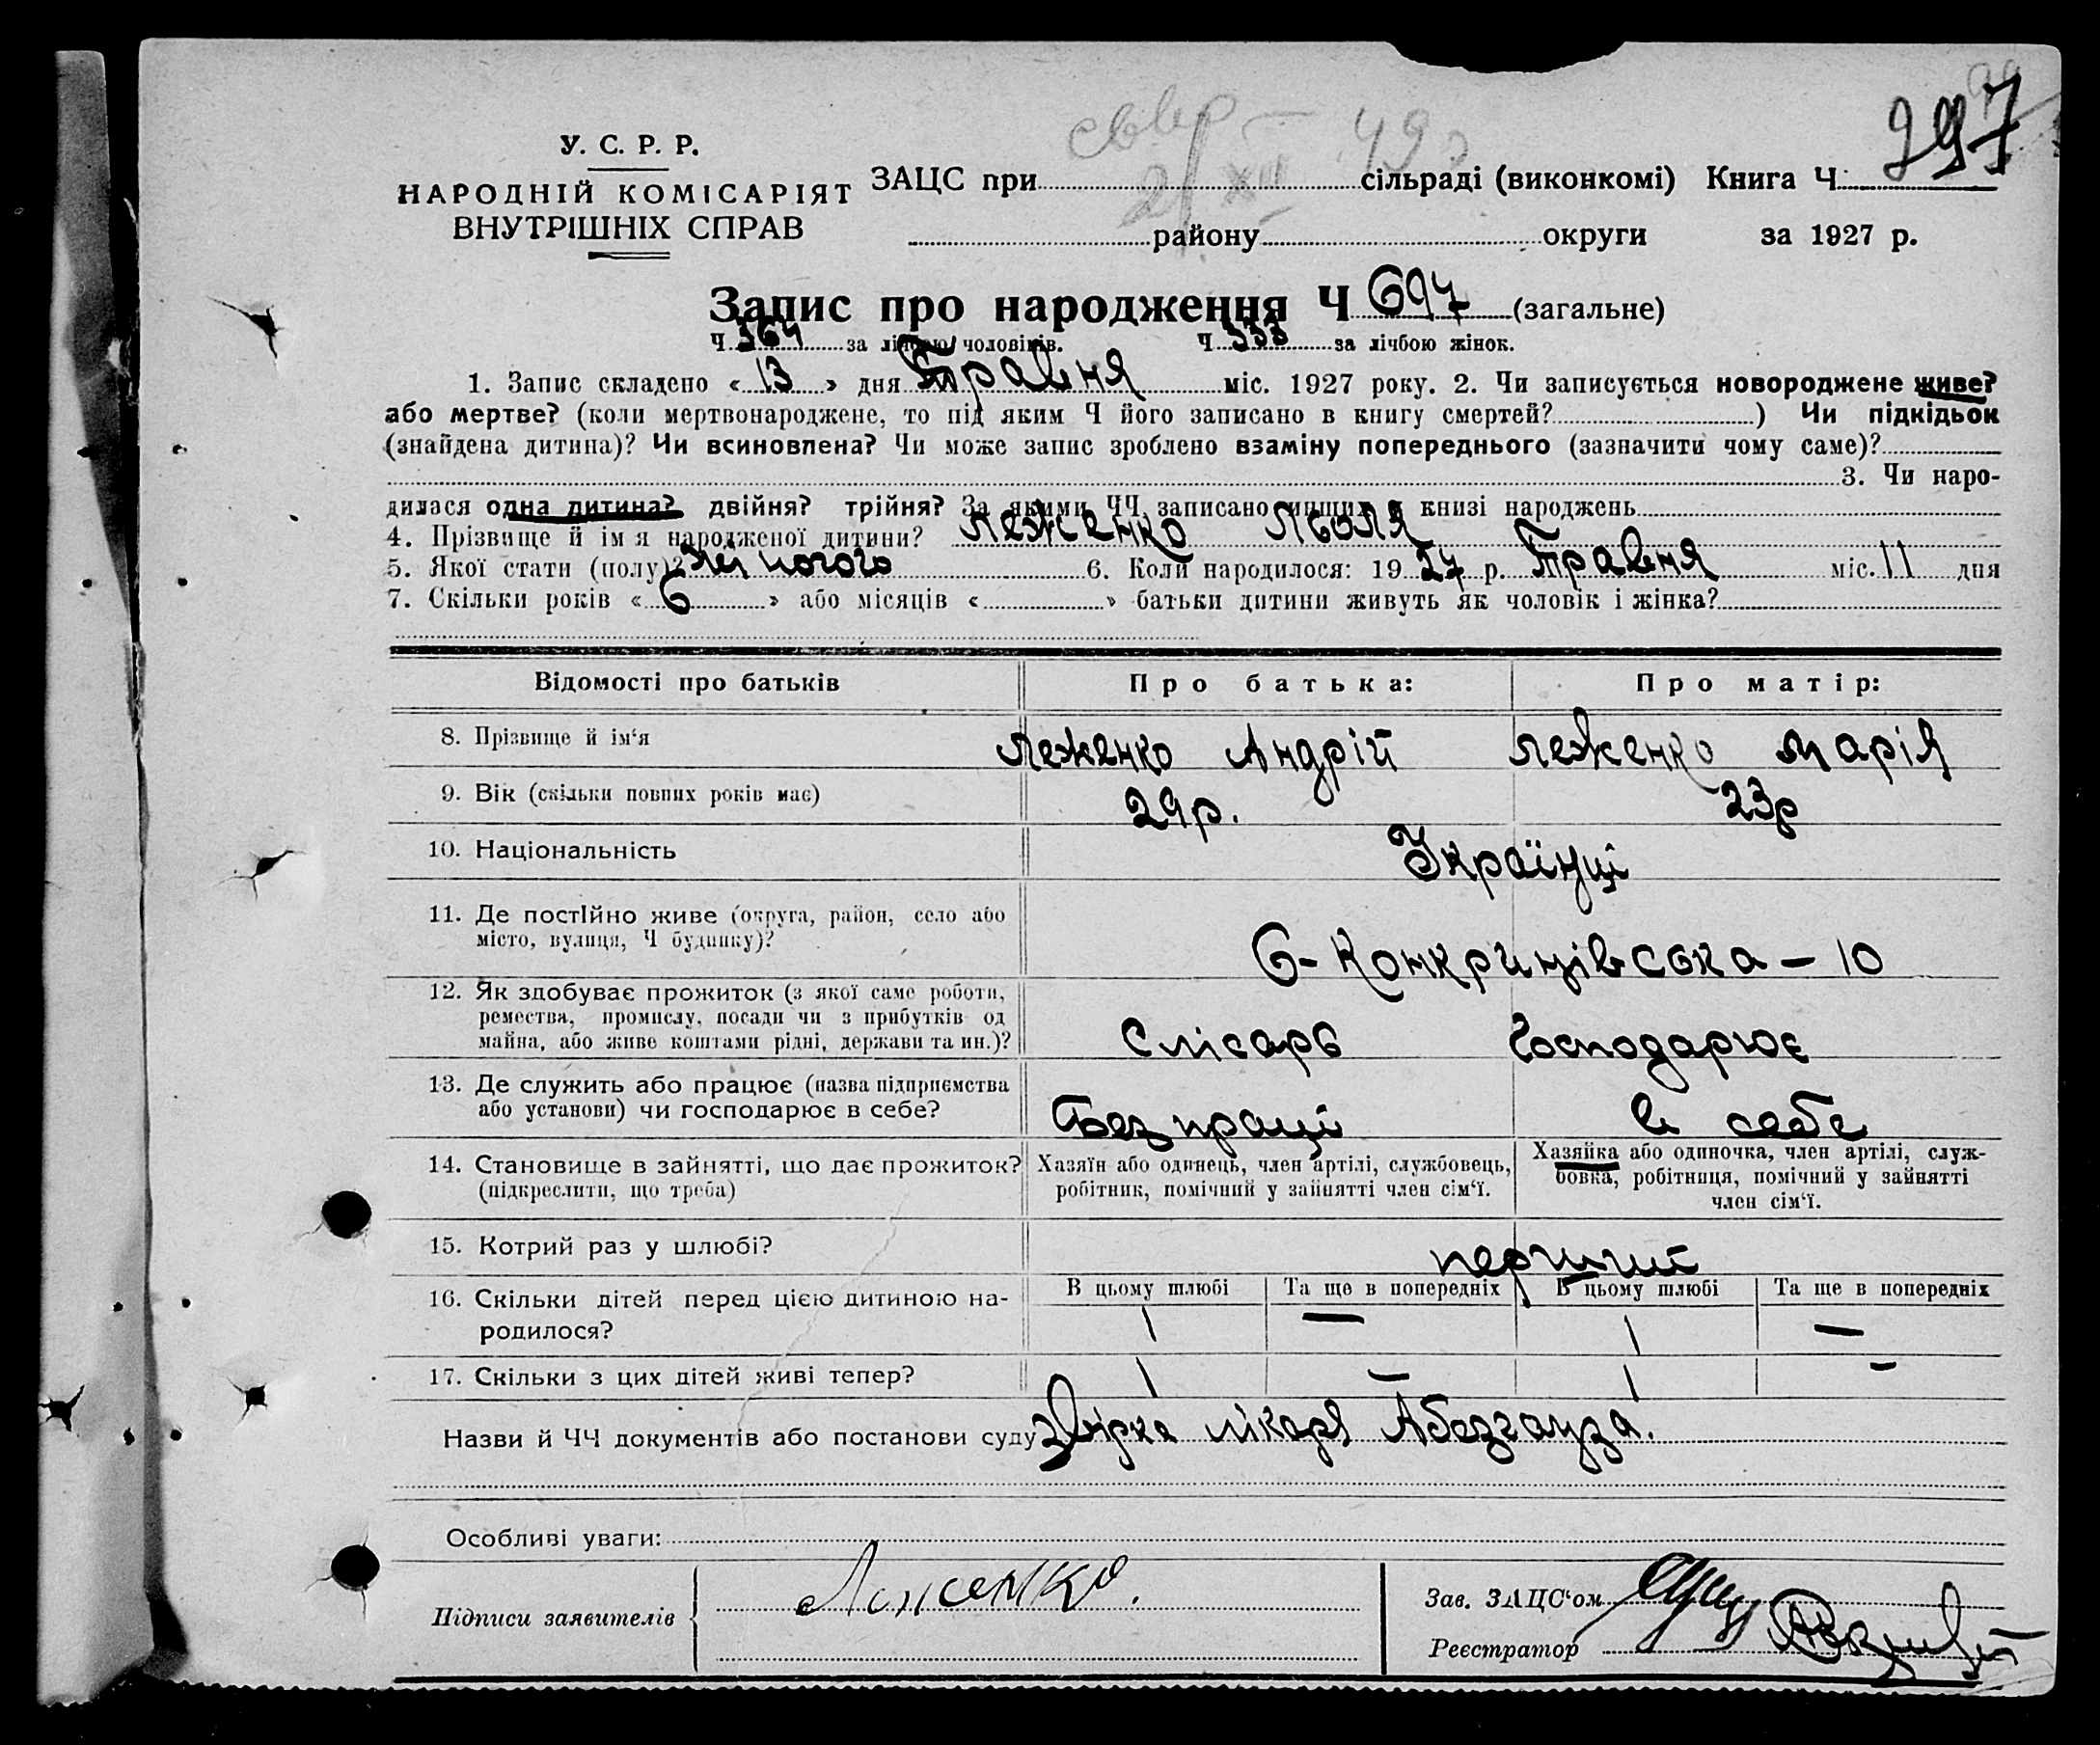 297
У. С. Р. Р.
НАРОДНІЙ КОМІСАРІЯТ
ВНУТРІШНІХ СПРАВ
ЗАЦС при сільраді (виконкомі) Книга Ч.
району округи за 1927 р.
Запис про народження Ч 697 (загальне)
Ч 364 за лічбою чоловіків. Ч 333 за лічбою жінок.
1. Запис складено « 13 » дня Травня міс. 1927 року. 2. Чи записується новороджене живе?
або мертве? (коли мертвонароджене, то під яким Ч його записано в книгу смертей? ) Чи підкідьок
(знайдена дитина)? Чи всиновлена? Чи може запис зроблено взаміну попереднього (зазначити чому саме)?
3. Чи наро-
дилася одна дитина? двійня? трійня? За якими ЧЧ. записано инших в книзі народжень
4. Прізвище й ім я народженої дитини? Леженко Льоля
5. Якої стати (полу)? жіночого 6. Коли народилося: 19 27 р. Травня міс. 11 дня
7. Скільки років « 6 » або місяців « » батьки дитини живуть як чоловік і жінка?
Відомості про батьків Про батька: Про матір:
8. Прізвище й ім‘я Леженко Андрій Леженко Марія
9. Вік (скільки повних років має) 29 р. 23 р
10. Національність Українці
11. Де постійно живе (округа, район, село або
місто, вулиця, Ч будинку)? 6-Конкринівська – 10
12. Як здобуває прожиток (з якої саме роботи,
ремества, промислу, посади чи з прибутків од
майна, або живе коштами рідні, держави та ин.)? Слісарь Господарює
13. Де служить або працює (назва підприємства
або установи) чи господарює в себе? Без праці в себе
14. Становище в зайнятті, що дає прожиток?
(підкреслити, що треба)
Хазяїн або одинець, член артілі, службовець,
робітник, помічний у зайнятті член сім‘ї.
Хазяйка або одиночка, член артілі, служ-
бовка, робітниця, помічний у зайнятті
член сім‘ї.
15. Котрий раз у шлюбі? перший
16. Скільки дітей перед цією дитиною на-
родилося?
В цьому шлюбі Та ще в попередніх В цьому шлюбі Та ще в попередніх
1 — 1 —
17. Скільки з цих дітей живі тепер? 1 — 1 -
Назви й ЧЧ документів або постанови суду звірка лікаря Абезгауза.
Особливі уваги:
Підписи заявителів Леженко.
Зав. ЗАЦС‘ом
Реєстратор